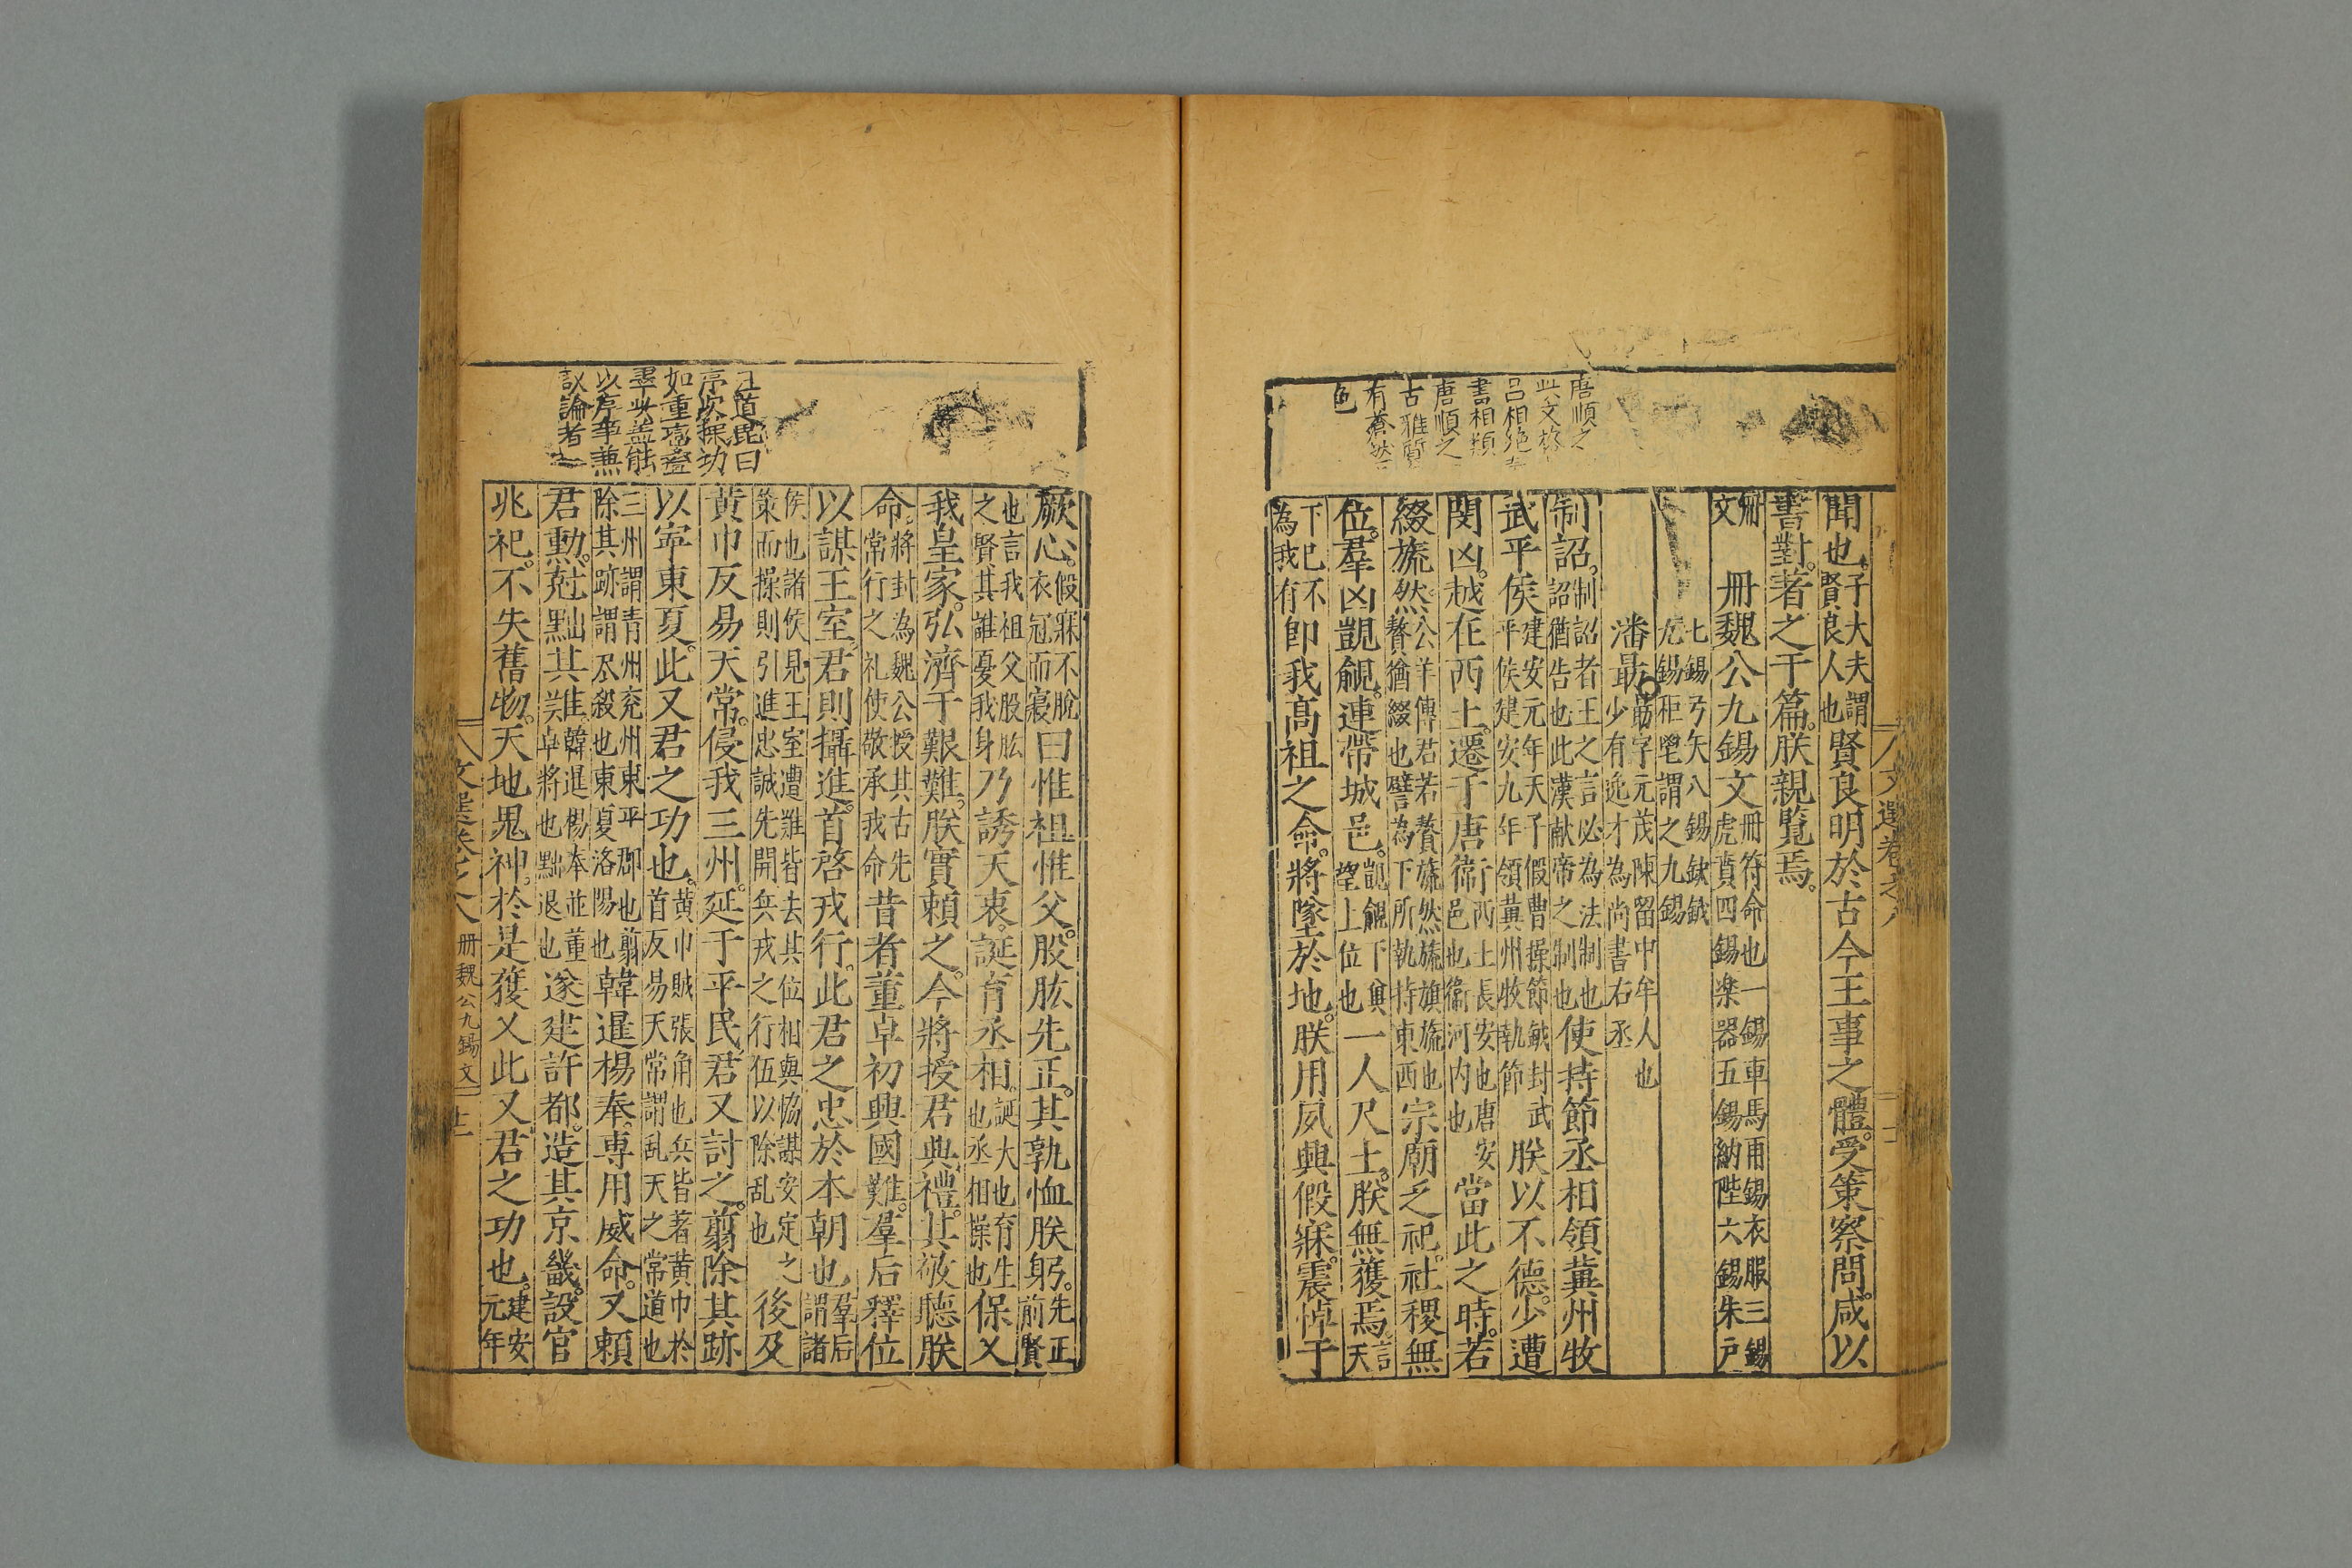 唐順之
此文格
呂相絕秦
書相類
唐順之
古雅質
有蒼然
色
聞也子大夫謂賢良人也賢良明於古今王事之體受策察問咸以
書對著之于篇朕親覽焉
冊文
冊魏公九錫文冊符命也一錫車馬甬錫衣服三錫虎賁四錫楽器五錫納陛六錫朱戸
七錫弓矢八錫鈇鉞九錫秬鬯謂之九錫
潘勗勗字元茂陳留中牟人也少有逸才為尚書右丞
制詔制詔者王之言必為法制也詔猶告也此漢献帝之制也使持節丞相領冀州牧
武平侯建安元年天子假曹操節鉞封武平侯建安九年領冀州牧執節朕以不德少遭
閔凶越在西土遷于唐衛西土長安也唐安邑也衛河内也當此之時若
綴旒然公羊傳君若贅旒然旒旗旒也贅猶綴也譬為下所執持東西宗廟乏祀社稷無
位羣凶覬覦連帶城邑覬覦下興望上位也一人尺土朕無獲焉言天
下已不為我有即我髙祖之命將墜於地朕用夙興假寐震悼于
文選卷之八
王道昆曰
序次操功
如重巒疊
翠此盖能
以序事兼
議論者
厥心假寐不脫衣冠而寢曰惟祖惟父股肱先正其孰恤朕躬先正前賢
也言我祖父股肱之賢其誰憂我身乃誘天衷誕育丞相誕大也育生也丞相操也保乂
我皇家弘濟于艱難朕實賴之今將授君典禮其祓聽朕
命將封為魏公授其古先常行之礼使敬承我命昔者董卓初興國難羣后釋位
以謀王室君則攝進首啓戎行此君之忠於本朝也羣后謂諸
侯也諸侯見王室遭難皆去其位相與恊謀安定之策而操則引進忠誠先開兵戎之行伍以除乱也後及
黄巾反易天常侵我三州延于平民君又討之翦除其跡
以寧東夏此又君之功也黄巾賊張角也兵皆著黄巾於首反易天常謂乱天之常道也
三州謂青州兖州東平郡也翦除其跡謂尽殺也東夏洛陽也韓暹楊奉専用威命又賴
君勳尅黜其難韓暹楊奉並董卓將也黜退也遂建許都造其京畿設官
兆祀不失舊物天地鬼神於是獲乂此又君之功也建安元年
文選卷之八 冊魏公九錫文